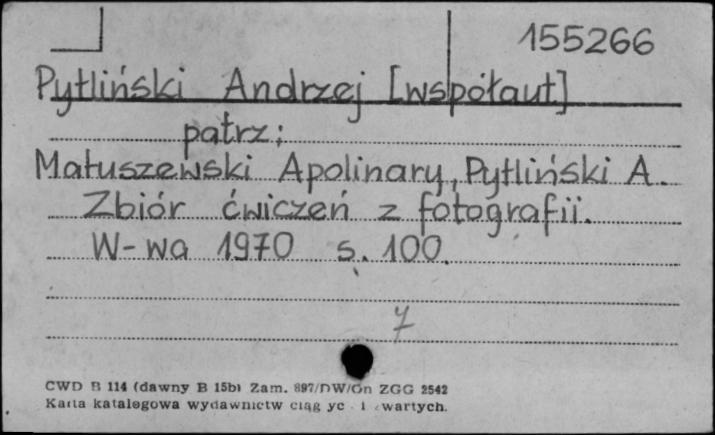 155266
Pytliński Andrzej [współaut]
patrz:
Matuszewski Apolinary, Pytliński A.
Zbiór ćwiczeń z fotografii.
W-wa 1970 s. 100.
7
CWD B 114 (dawny B 15b) Zam. 897/DW/Gn ZGG 2542
Karta katalogowa wydawnictw ciąg yc i zwartych.